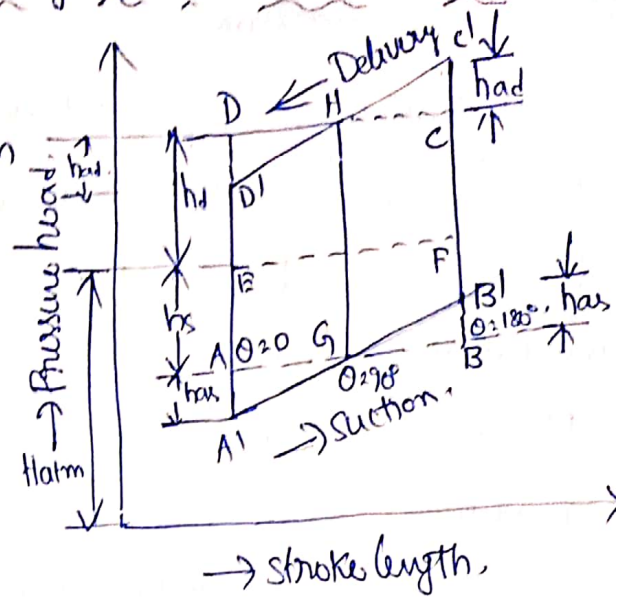 Delivery
C'
had
D
H
C
had
→ Pressure head
hd
D'
E
F
hs
B'
has
A
θ=0
G
θ=180°
B
has
θ=90°
A'
→ suction.
Hatm
→ stroke length.